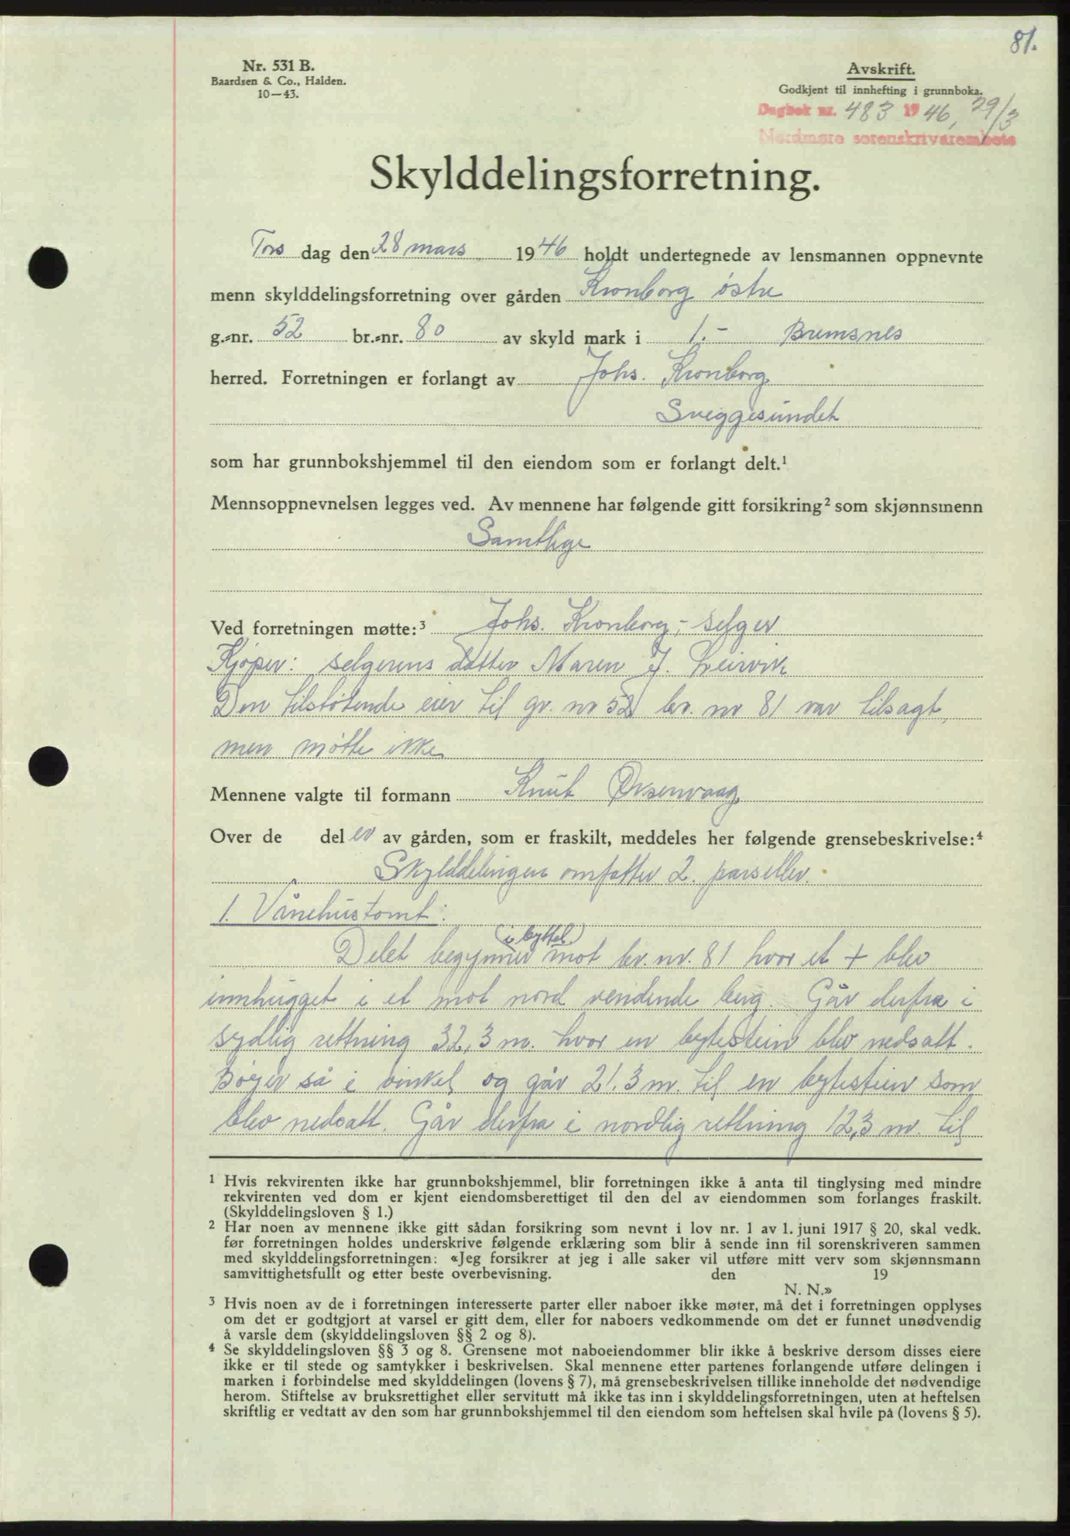 81.
Nr. 531 B.
Baardsen & Co., Halden.
10—43.
Avskrift.
Godkjent til innhefting i grunnboka.
Dagbok nr. 483 1946, 29/3
Nordmøre sorenskriverembete
Skylddelingsforretning.
Tors dag den 28 mars 1946 holdt undertegnede av lensmannen oppnevnte
menn skylddelingsforretning over gården Kronborg østre
g.-nr. 52 br.-nr. 80 av skyld mark i 1.- Bremsnes
herred. Forretningen er forlangt av Johs. Kronborg
Sveggesundet
som har grunnbokshjemmel til den eiendom som er forlangt delt.¹
Mennsoppnevnelsen legges ved. Av mennene har følgende gitt forsikring² som skjønnsmenn
Samtlige
Ved forretningen møtte:³ Johs. Kronborg,- selger
Kjøper: selgerens datter Maren J. Leirvik
Den tilstøtende eier til gr. nr 52 br. nr 81 var tilsagt,
men møtte ikke
Mennene valgte til formann Knut Ørsenvaag
Over de del er av gården, som er fraskilt, meddeles her følgende grensebeskrivelse:⁴
Skylddelingen omfatter 2. parseller.
1. Vånehustomt:
(i byttet)
Delet begynner mot br. nr. 81 hvor et + blev
innhugget i et mot nord vendende berg. Går derfra i
sydlig rettning 32,3 m. hvor en bytestein blev nedsatt.
Bøyer så i vinkel og går 21.3 m. til en bytestein som
blev nedsatt. Går derfra i nordlig rettning 12,3 m. til
¹ Hvis rekvirenten ikke har grunnbokshjemmel, blir forretningen ikke å anta til tinglysing med mindre
rekvirenten ved dom er kjent eiendomsberettiget til den del av eiendommen som forlanges fraskilt.
(Skylddelingsloven § 1.)
² Har noen av mennene ikke gitt sådan forsikring som nevnt i lov nr. 1 av 1. juni 1917 § 20, skal vedk.
før forretningen holdes underskrive følgende erklæring som blir å sende inn til sorenskriveren sammen
med skylddelingsforretningen: «Jeg forsikrer at jeg i alle saker vil utføre mitt verv som skjønnsmann
samvittighetsfullt og etter beste overbevisning. den 19
N. N.»
³ Hvis noen av de i forretningen interesserte parter eller naboer ikke møter, må det i forretningen opplyses
om det er godtgjort at varsel er gitt dem, eller for naboers vedkommende om det er funnet unødvendig
å varsle dem (skylddelingsloven §§ 2 og 8).
⁴ Se skylddelingsloven §§ 3 og 8. Grensene mot naboeiendommer blir ikke å beskrive dersom disses eiere
ikke er til stede og samtykker i beskrivelsen. Skal mennene etter partenes forlangende utføre delingen i
marken i forbindelse med skylddelingen (lovens § 7), må grensebeskrivelsen tillike inneholde det nødvendige
herom. Stiftelse av bruksrettighet eller servitutt må ikke tas inn i skylddelingsforretningen, uten at heftelsen
skriftlig er vedtatt av den som har grunnbokshjemmel til den eiendom som heftelsen skal hvile på (lovens § 5).